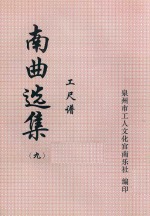 南曲选集
（九）
工尺谱
泉州市工人文化宫南乐社 编印